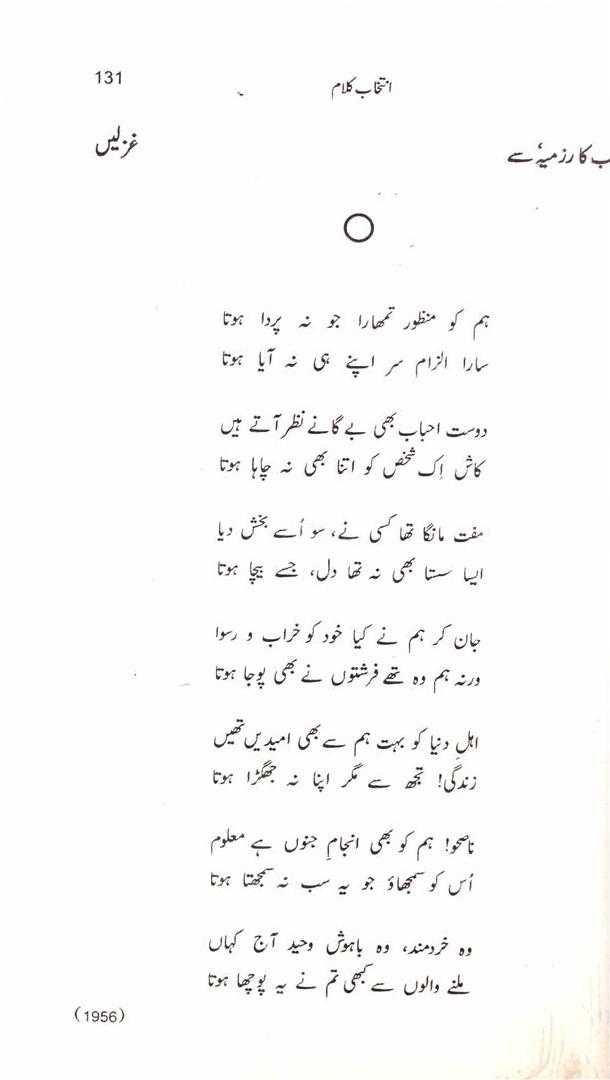 131
انتخاب کلام
غزلیں
ب کا رزمیہٗ سے
ہم کو منظور تمھارا جو نہ پردا ہوتا
سارا الزام سر اپنے ہی نہ آیا ہوتا
دوست احباب بھی بے گانے نظر آتے ہیں
کاش اِک شخص کو اتنا بھی نہ چاہا ہوتا
مفت مانگا تھا کسی نے، سو اُسے بخش دیا
ایسا سستا بھی نہ تھا دل، جسے بیچا ہوتا
جان کر ہم نے کیا خود کو خراب و رسوا
ورنہ ہم وہ تھے فرشتوں نے بھی پوجا ہوتا
اہلِ دنیا کو بہت ہم سے بھی امیدیں تھیں
زندگی! تجھ سے مگر اپنا نہ جھگڑا ہوتا
ناصحو! ہم کو بھی انجامِ جنوں ہے معلوم
اُس کو سمجھاؤ جو یہ سب نہ سمجھتا ہوتا
وہ خردمند، وہ باہوش وحید آج کہاں
ملنے والوں سے کبھی تم نے یہ پوچھا ہوتا
(1956)